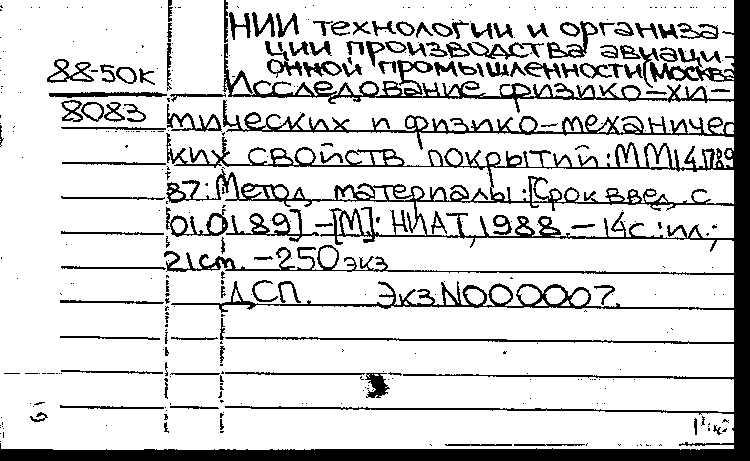 НИИ технологии и организа-
ции производства авиаци-
онной промышленности (Москва
88-50к
Исследование физико-хи-
8083
мических и физико-механичес
ких свойств покрытий: ММ1.4.1789
87: Метод. материалы: [Срок введ. с
01.01.89] - [М]: НИАТ, 1988. - 14с.: ил.;
21ст. - 250 экз
ДСП. Экз N000007.